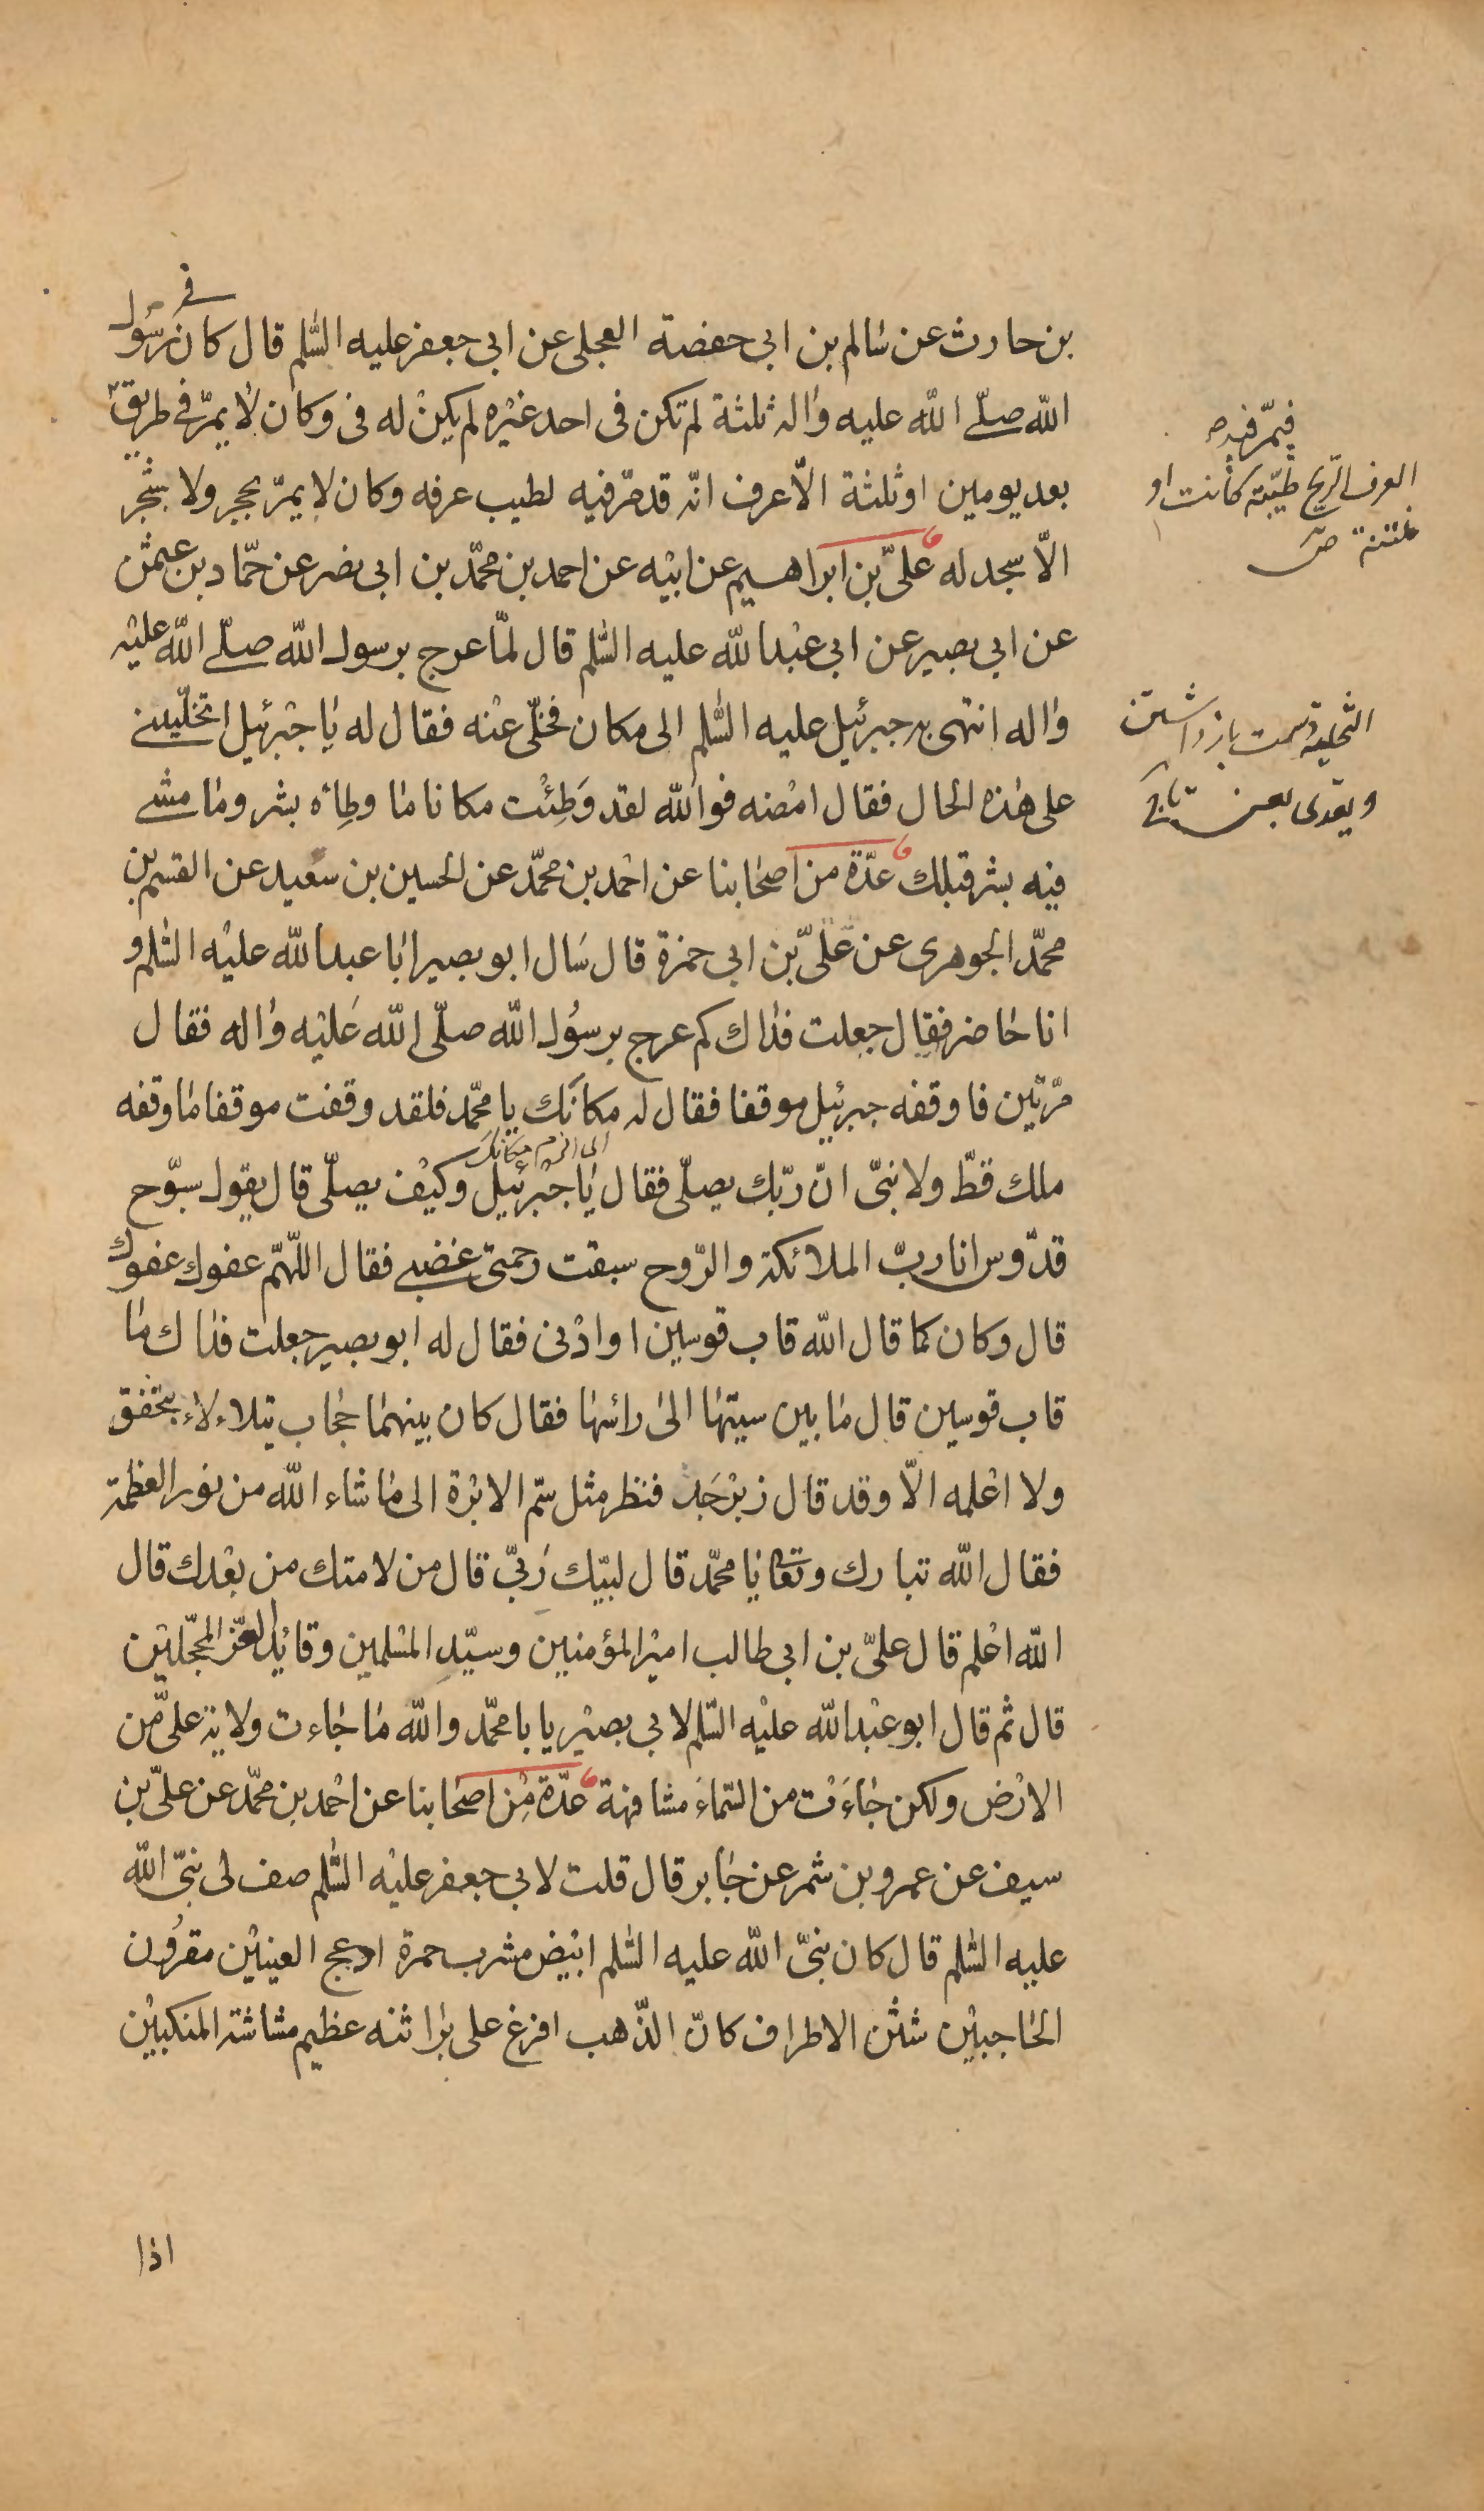 في
بن حارث عن سالم بن ابي حفصة العجلي عن ابي جعفر عليه السلم قال كان رسول
الله صلى الله عليه واله ثلثة لم تكن في احد غيره لم يكن له فىء وكان لا يمرّ في طريق
فيمرّ فيه ص
بعد يومين او ثلثة الّا عرف انّه قد مرّ فيه لطيب عرفه وكان لا يمرّ بحجر ولا شجر
العرف الرّيح طيّبة كانت او
منتنة ص
الّا سجد له عليّ بن ابراهيم عن ابيه عن احمد بن محمّد بن ابي نصر عن حمّاد بن عثمن
عن ابي بصير عن ابي عبد الله عليه السّلم قال لمّا عرج برسول الله صلّى الله عليه
واله انتهى به جبرئيل عليه السّلم الى مكان فخلّى عنه فقال له يا جبرئيل اتخلّيني
التخلية دست بازداشتن
على هذه الحال فقال امضه فوالله لقد وَطِئْت مكانا ما وطِاه بشر وما مشى
ويعدى بعن تاج
فيه بشر قبلك عدّة من اصحابنا عن احمد بن محمّد عن الحسين بن سعيد عن القسم بن
محمّد الجوهرى عن عليّ بن ابي حمزة قال سَال ابو بصير ابا عبد الله عليه السّلم و
انا حاضر فقال جعلت فداك كم عرج برسول الله صلّى الله عليه واله فقال
مرّتين فاوقفه جبرئيل موقفا فقال له مكانَك يا محمّد فلقد وقفت موقفا ما وقفه
اى الزم مكانك
ملك قطّ ولا نبيّ انّ ربّك يصلّي فقال يا جبرئيل وكيف يصلّي قال يقول سبّوح
قدّوس انا ربّ الملائكة والرّوح سبقت رحمتي غضبي فقال اللّهمّ عفوك عفوك
قال وكان كما قال الله قاب قوسين او ادنى فقال له ابو بصير جعلت فداك ما
قاب قوسين قال ما بين سيتها الى رأسها فقال كان بينهما حجاب يتلاءلاء يخفق
ولا اعلمه الّا وقد قال زبرجَد فنظر مثل سمّ الابرة الى ما شاء الله من نور العظمة
فقال الله تبارك وتعا يا محمّد قال لبيّك رَبّي قال من لامتك من بعدك قال
الله اعلم قال عليّ بن ابي طالب امير المؤمنين وسيّد المسلمين وقائد الغرّ المحجّلين
قال ثم قال ابو عبد الله عليه السّلم لابي بصير يا با محمّد والله ما جاءت ولاية عليّ من
الارض ولكن جاءَت من السّماء مشافهة عدّة مِن اصحابنا عن احمد بن محمّد عن عليّ بن
سيف عن عمرو بن شمر عن جابر قال قلت لابي جعفر عليه السّلم صف لي نبيّ الله
عليه السّلم قال كان نبيّ الله عليه السّلم ابيض مشرب حمرة ادعج العينين مقرون
الحاجبين شثن الاطراف كانّ الذّهب افرغ على براثنه عظيم مشاشة المنكبين
اذا